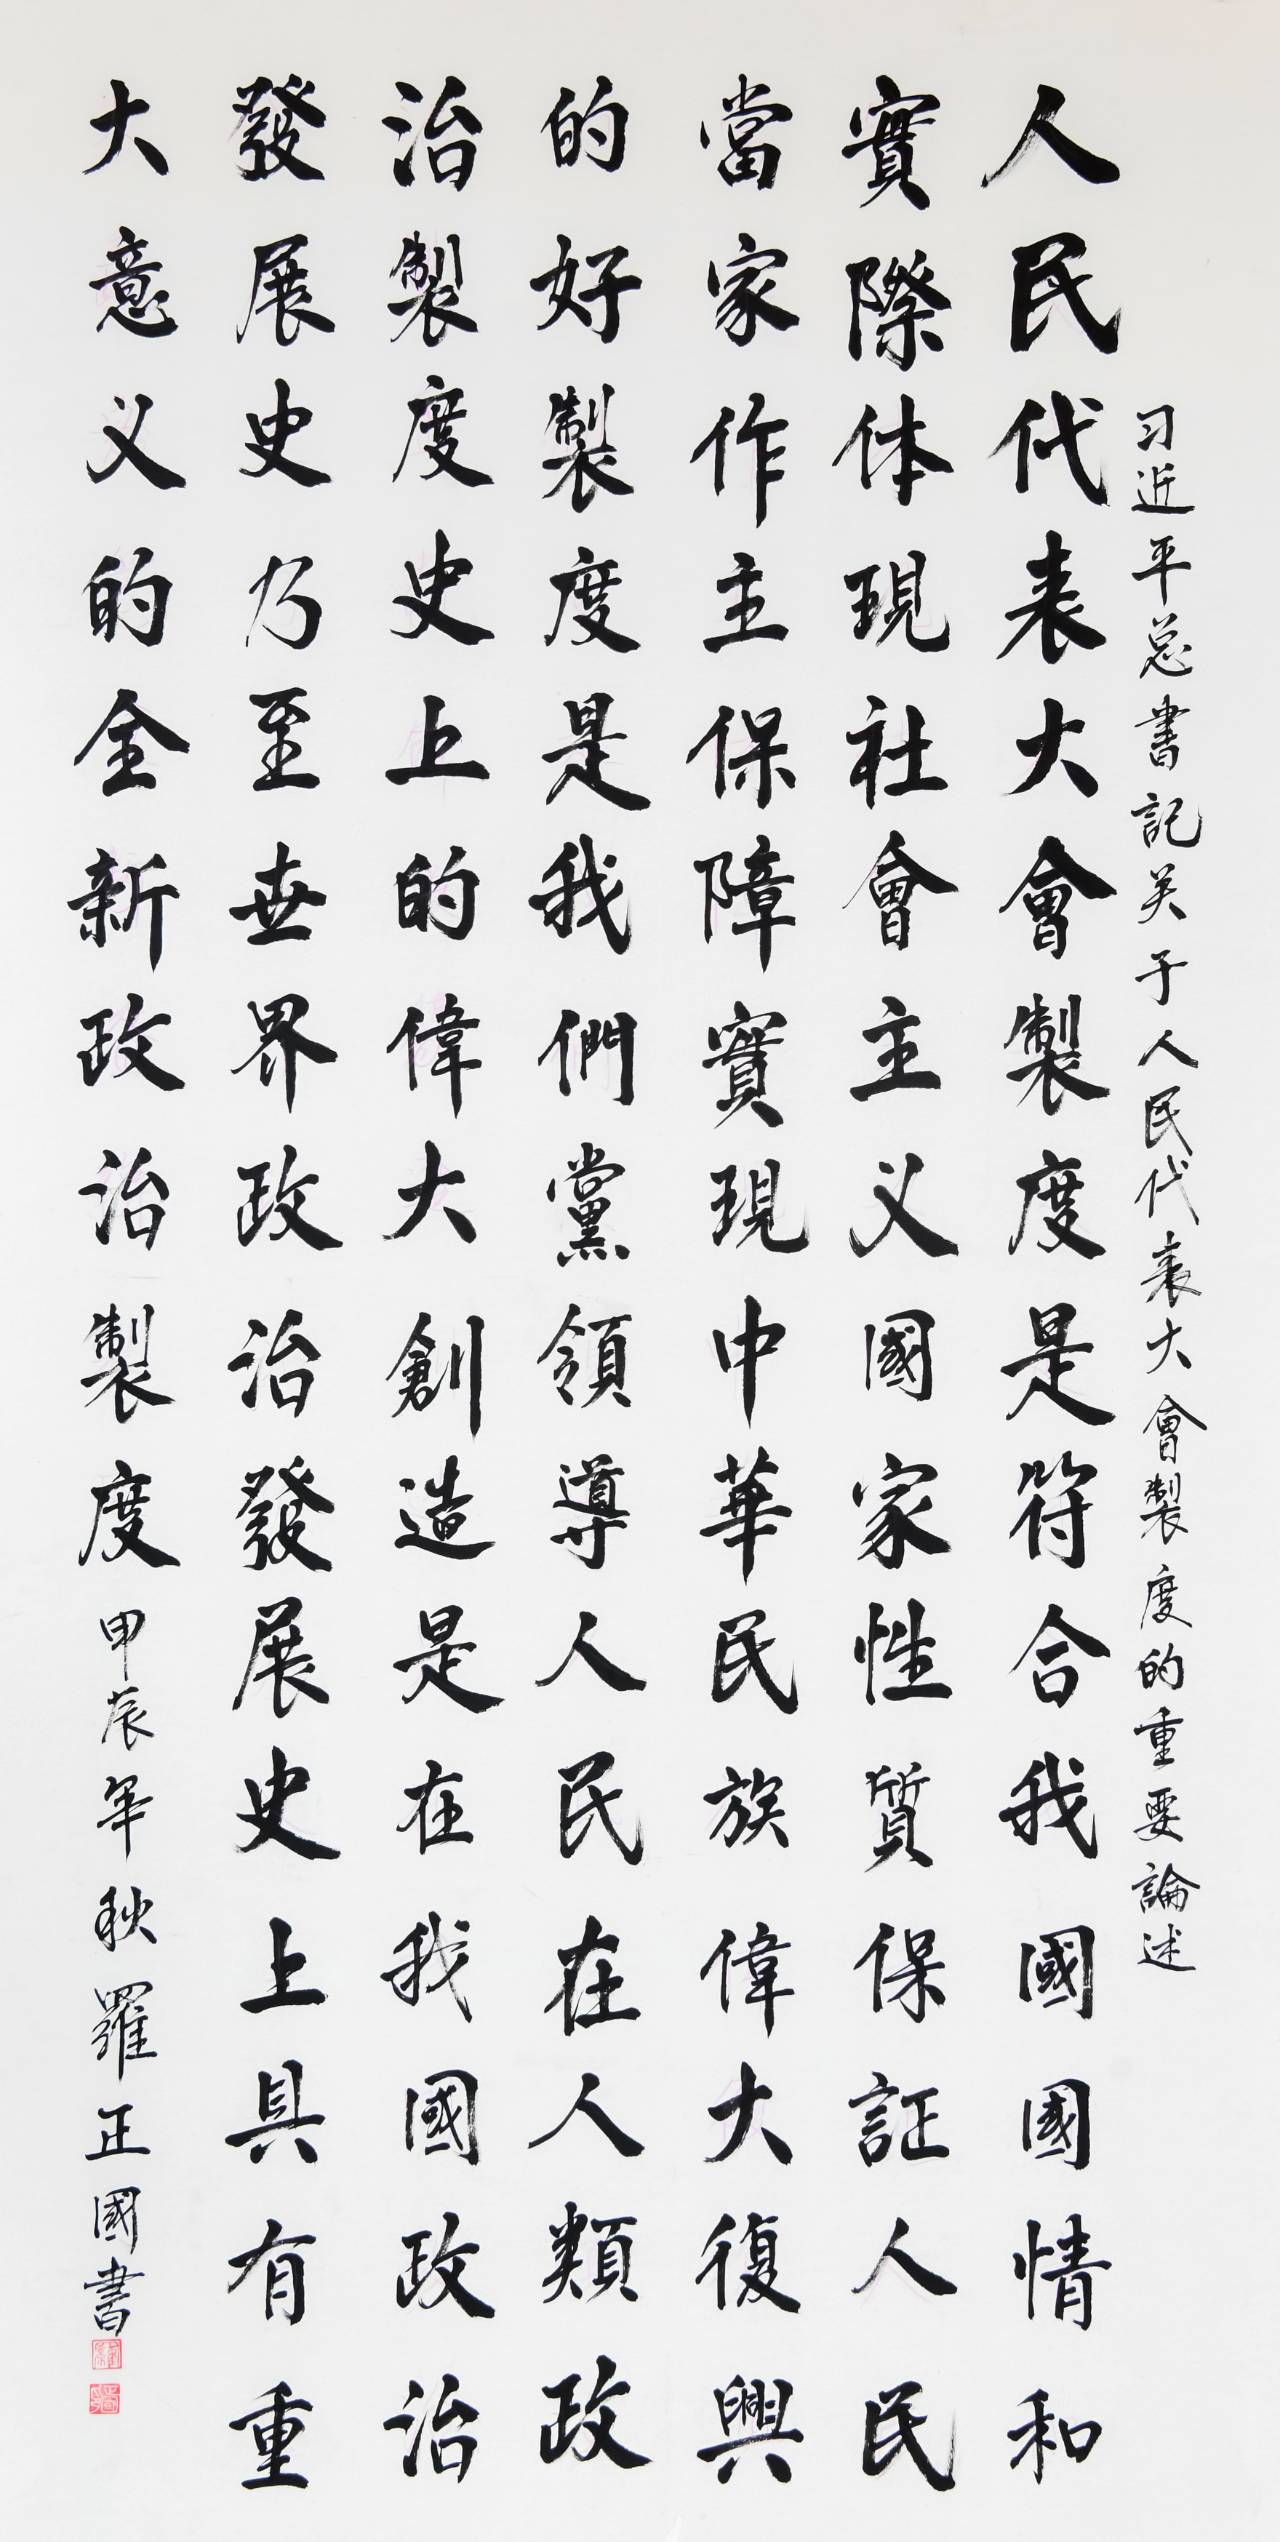 习近平总書記关于人民代表大會製度的重要論述
人民代表大會製度是符合我國國情和
實際体現社會主义國家性質保証人民
當家作主保障實現中華民族偉大復興
的好製度是我們黨領導人民在人類政
治製度史上的偉大創造是在我國政治
發展史乃至世界政治發展史上具有重
大意义的全新政治製度甲辰年秋羅正國書